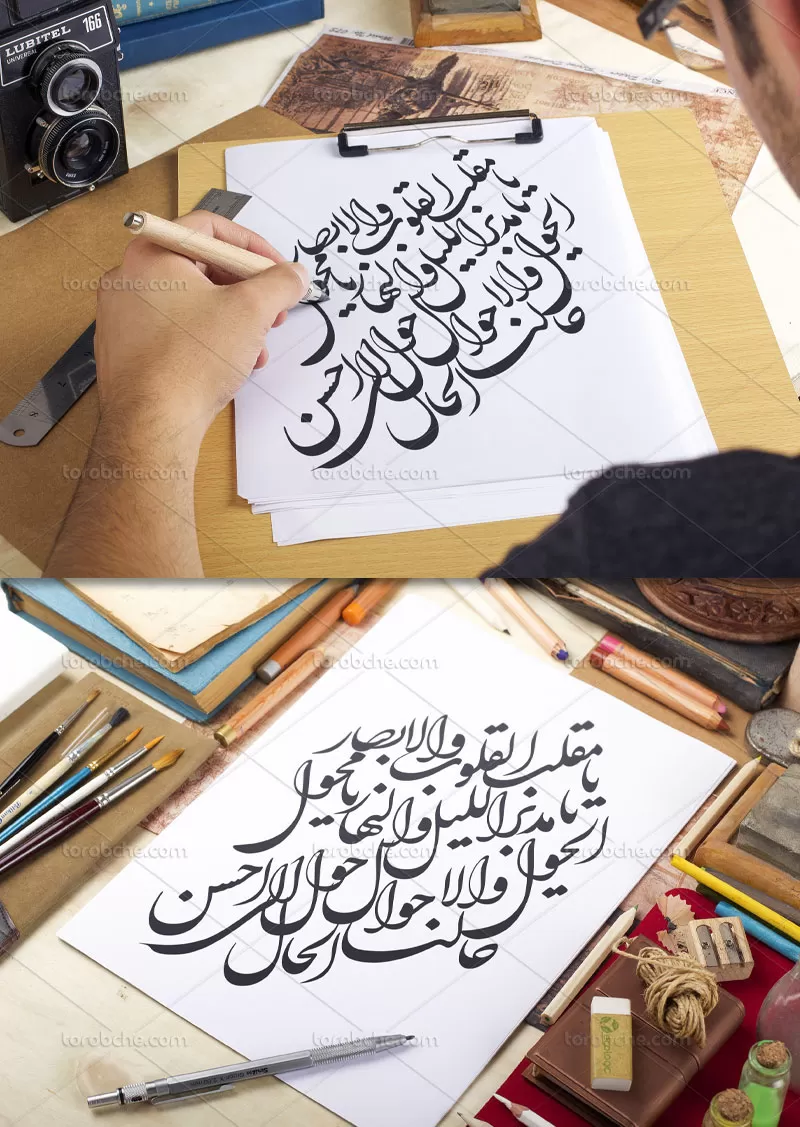 LUBITEL 166
UNIVERSAL
یا مقلب القلوب والابصار
یا مدبر اللیل والنهار یا محول
الحول والاحوال حول
حالنا الی احسن الحال
یا مقلب القلوب والابصار
یا مدبر اللیل والنهار یا محول
الحول والاحوال حول
حالنا الی احسن الحال
torobche.com